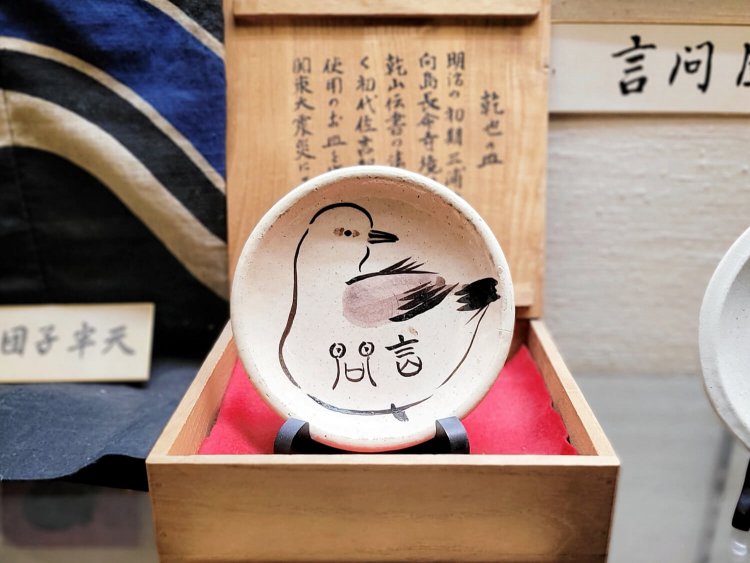 乾也の皿
明治の初期三浦
向島長命寺境
乾山伝書の
く初代佐吉
使用のお皿を
関東大震災に
言問
言問
団子半天